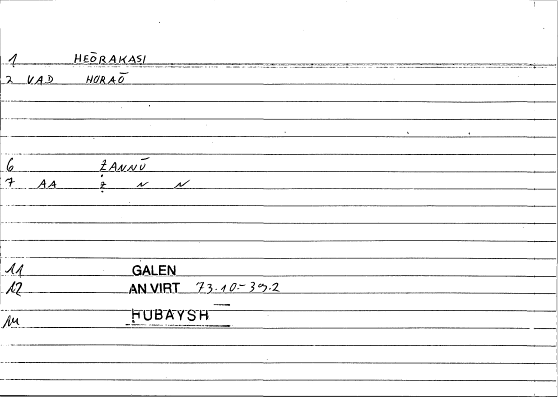 1 HEŌRAKASI
2 VAD HORAŌ
6 ẒANNŪ
7 AA Ẓ N N
11 GALEN
12 AN.VIRT 73.10-39.2
14 ḤUBAYSH